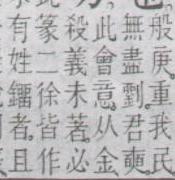 般庚。重我民
無盡劉。君奭
此會意。从金
殺義未著。必
篆二徐皆作
有姓鐂者。且